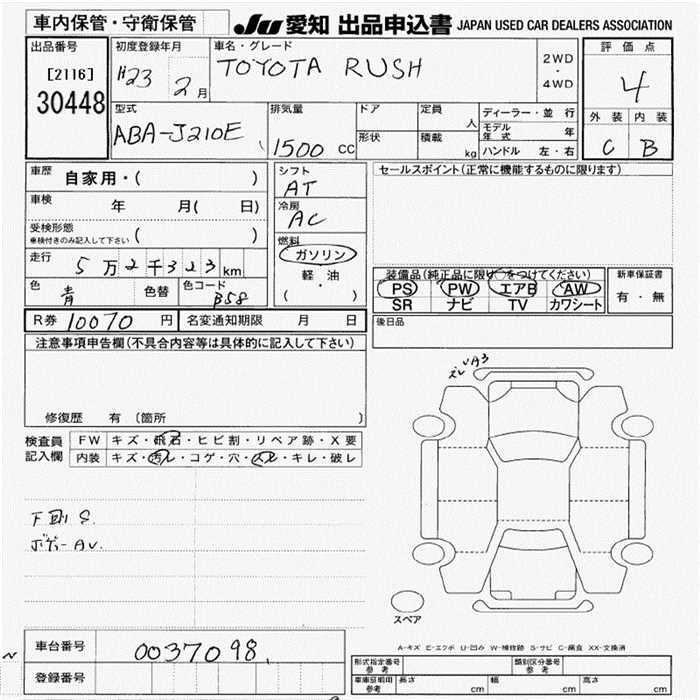 車内保管・守衛保管
JU 愛知 出品申込書 JAPAN USED CAR DEALERS ASSOCIATION
出品番号
[2116]
30448
初度登録年月
H23 2月
車名・グレード
TOYOTA RUSH
2WD
・
4WD
評価点
4
外装 内装
C B
型式
ABA-J210E
排気量
1500 cc
ドア
形状
定員
人
積載
kg
ディーラー・並行
モデル年式 年
ハンドル 左・右
車歴 自家用・( )
車検 年 月( 日)
受検形態
※検付きのみ記入して下さい ( )
走行 5万2千323km
色 青 色替 色コード B58
シフト
AT
冷房
AC
燃料
ガソリン
軽・油
( )
セールスポイント(正常に機能するものに限ります)
装備品(純正品に限り○をつけてください)
PS PW エアB AW
SR ナビ TV カワシート
新車保証書
有・無
R券 10070 円 名変通知期限 月 日
後日品
注意事項申告欄(不具合内容等は具体的に記入して下さい)
修復歴 有 (箇所 )
検査員記入欄
FW キズ・飛石・ヒビ割・リペア跡・X要
内装 キズ・汚れ・コゲ・穴・スレ・キレ・破レ
A3
下廻S.
ボデーAU.
スペア
A-キズ E-エクボ U-凹み W-補修跡 S-サビ C-腐食 XX-交換済
車台番号 0037098
登録番号
形式指定番号 参考
類別区分番号 参考
車庫証明用 参考 長さ cm 幅 cm 高さ cm